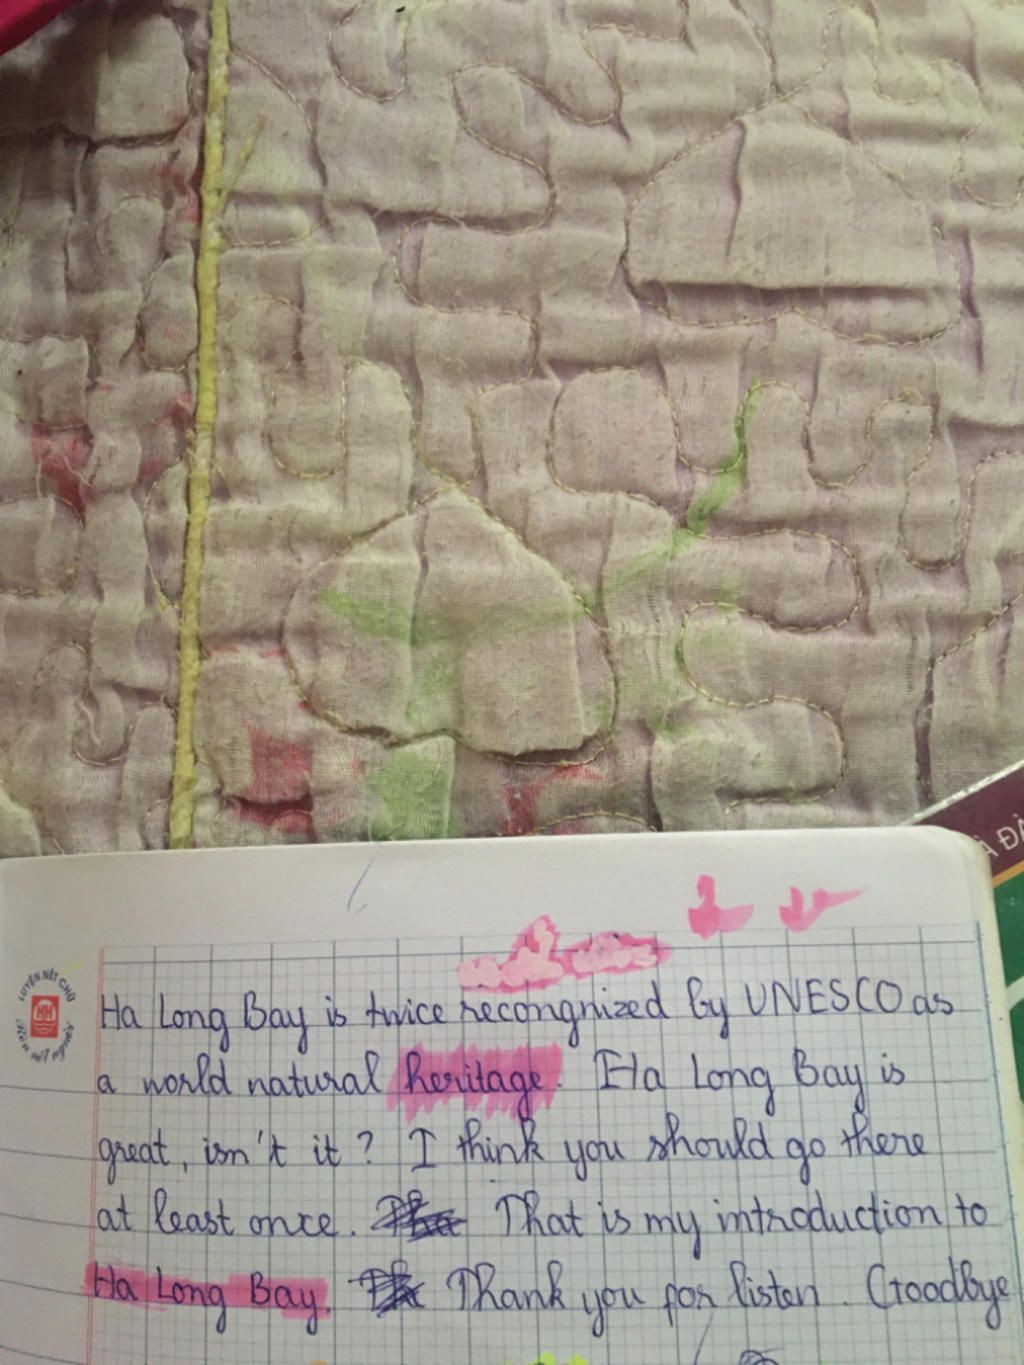 À ĐÀ
LUYỆN NÉT CHỮ
HH
Ha Long Bay is twice recongnized by UNESCO as
a world natural heritage. Ha Long Bay is
great, isn't it? I think you should go there
at least once. That is my introduction to
Ha Long Bay. Thank you for listen. Goodbye